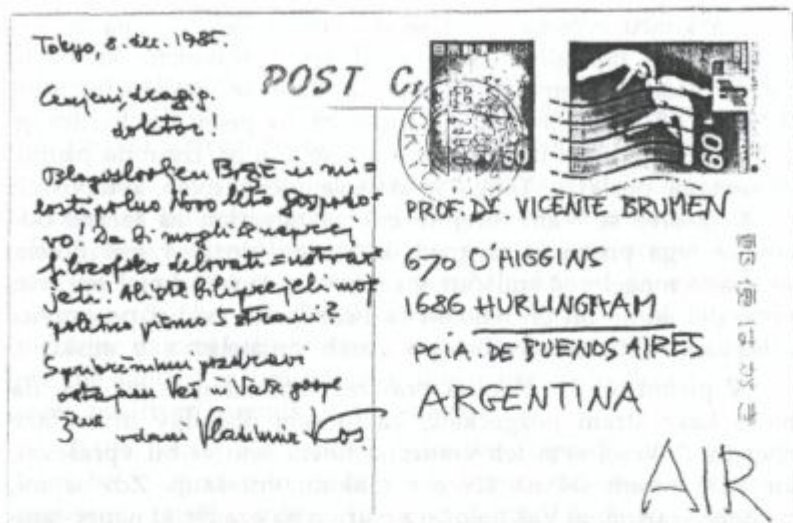 Tokyo, 8. dec. 1985.
Cenjeni, dragi g.
doktor!
Blagoslovljen Božič in mi=
losti polno Novo leto Gospodo=
vo! Da bi mogli še naprej
filozofsko delovati = ustvar
jati! Ali ste bili prejeli moje
poletno pismo 5 strani?
S prisrčnimi pozdravi
ostajam Vaš in Vaše gospe
vdani Vladimir Kos
POST
60
60
PROF. DR. VICENTE BRUMEN
670 O'HIGGINS
1686 HURLINGHAM
PCIA. DE BUENOS AIRES
ARGENTINA
AIR